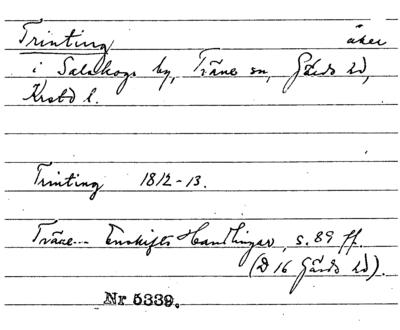 Trinting åker
i Salskogs by, Träne sn, Gärds hd,
Krstd l.
Trinting 1812-13.
Träne Enskiftes Handlingar, s. 89 ff.
(D 16 Gärds hd).
Nr 5339.